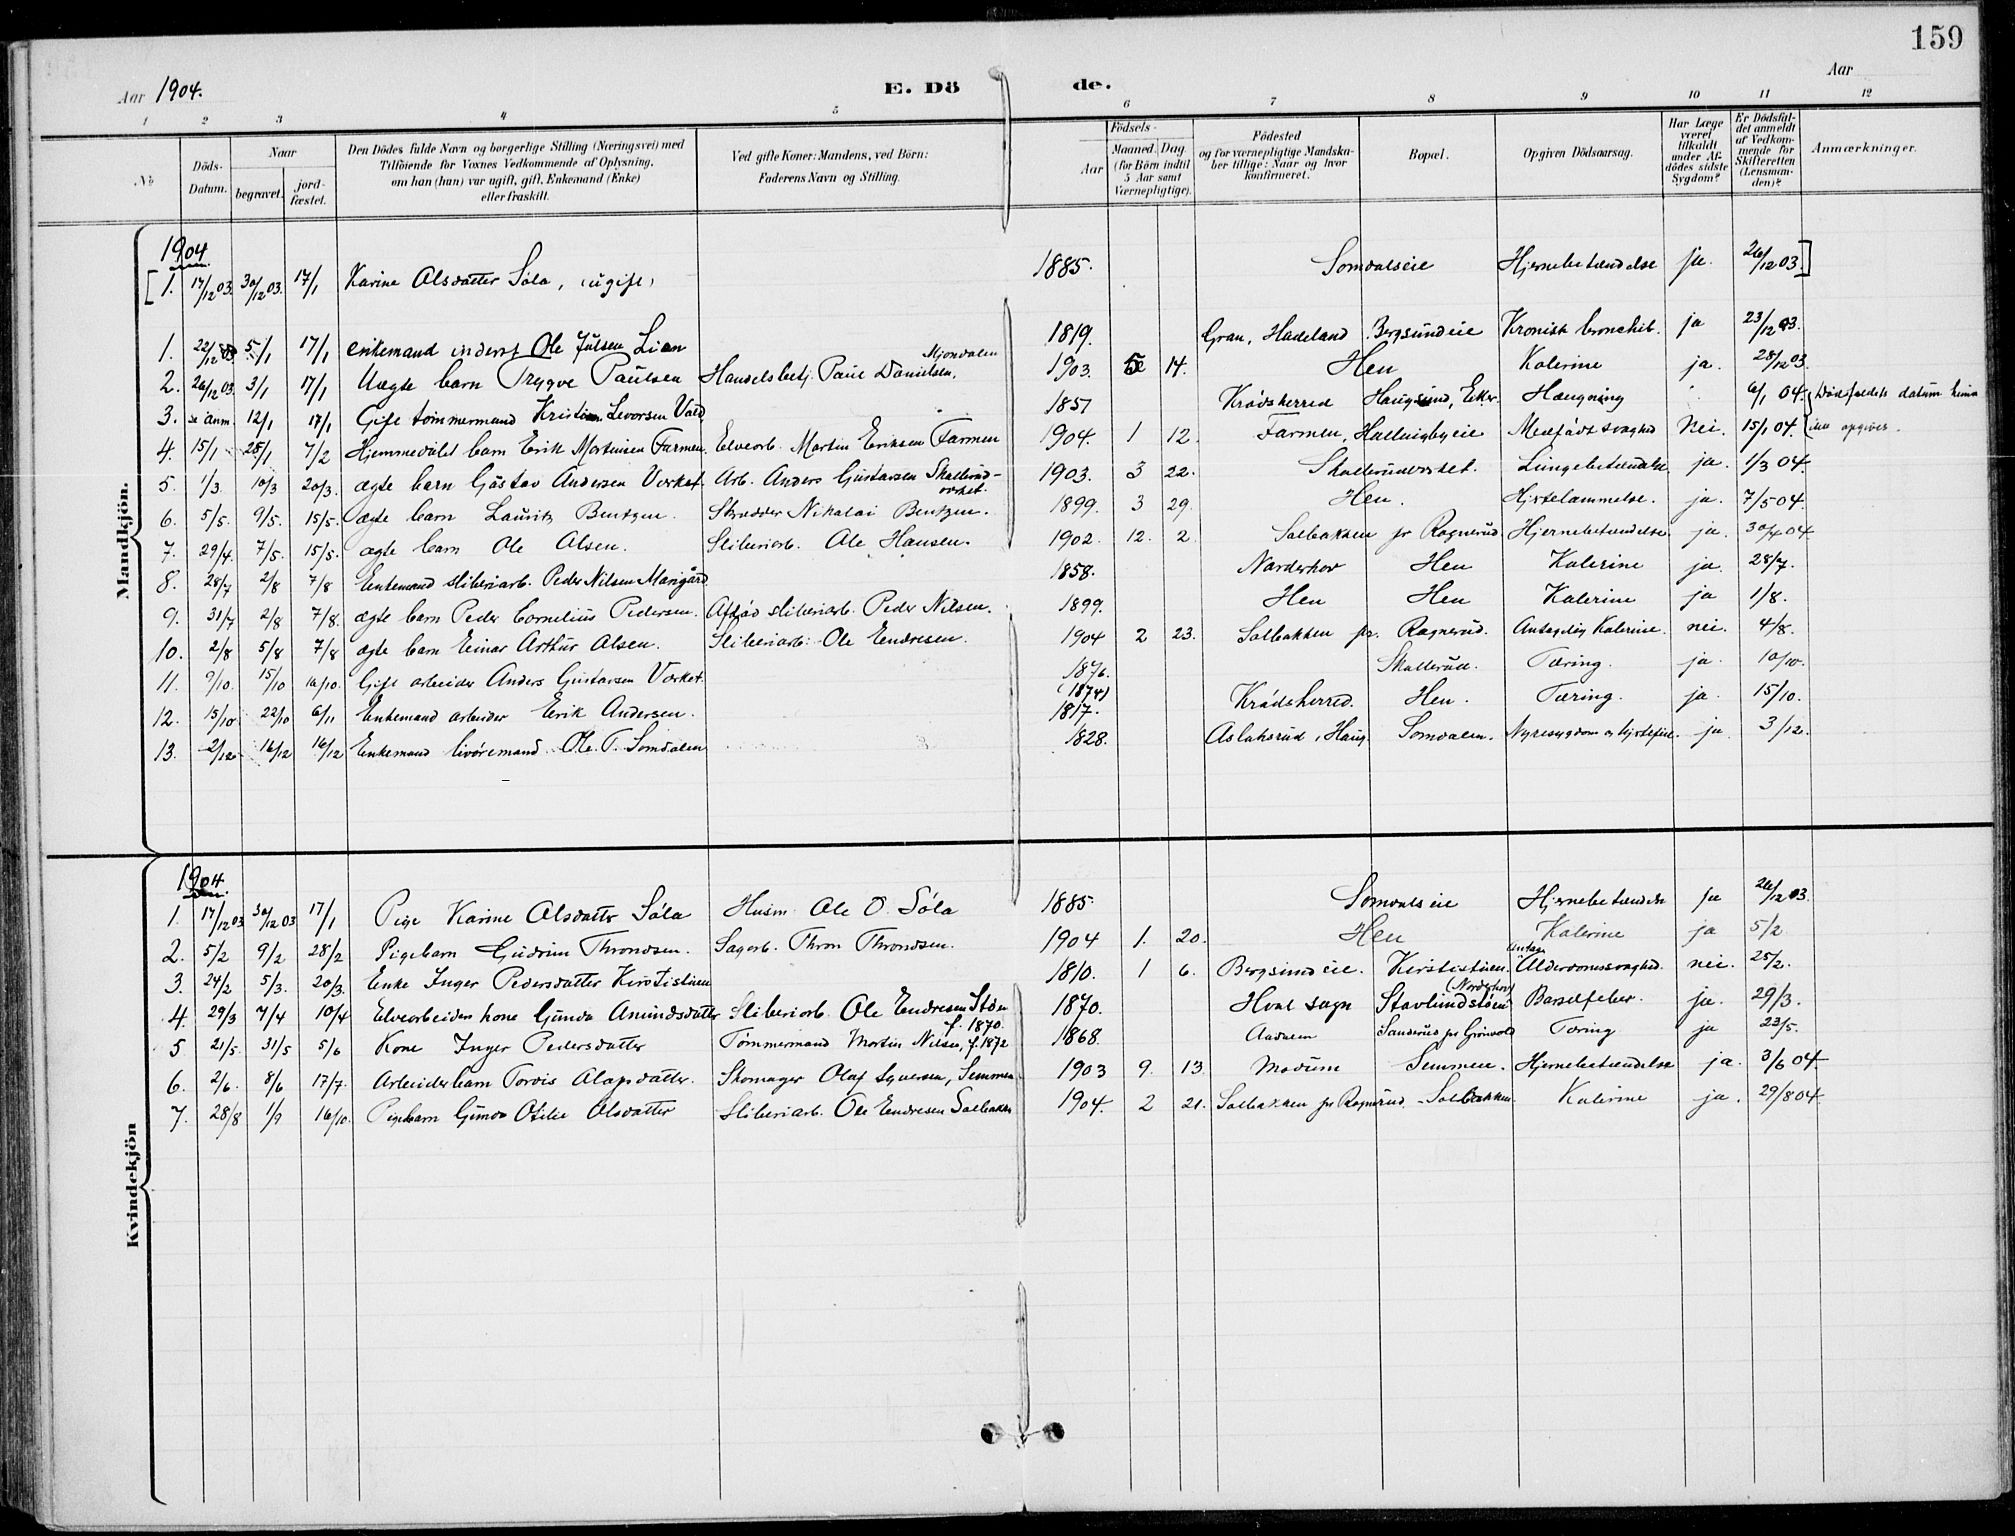 159
Aar 1904.
E. Dö de.
Aar
1 2 3 4 5 6 7 8 9 10 11 12
No
Döds-Datum.
Naar
begravet.
jord-fæstet.
Den Dödes fulde Navn og borgerlige Stilling (Næringsvei) med
Tilföiende for Voxnes Vedkommende af Oplysning,
om han (hun) var ugift, gift, Enkemand (Enke)
eller fraskilt.
Ved gifte Koner: Mandens, ved Börn:
Faderens Navn og Stilling.
Födsels-
Aar
Maaned. Dag.
(for Börn indtil
5 Aar samt
Værnepligtige).
Födested
og for værnepligtige Mandska-
ber tillige: Naar og hvor
konfirmeret.
Bopæl.
Opgiven Dödsaarsag.
Har Læge
været
tilkaldt
under Af-
dödes sidste
Sygdom?
Er Dödsfal-
det anmeldt
af Vedkom-
mende for
Skifteretten
(Lensman-
den)?
Anmærkninger.
Mandkjön.
1904
[1. 17/12 03. 30/12 03. 17/1 Karine Olsdatter Sóla, (ugift) 1885. Somdalseie Hjernebetændelse ja. 26/12 03.]
1. 22/12 03 5/1 17/1 Enkemand inderst Ole Julsen Lien 1819. Gran, Hadeland Bergsundeie Kronisk bronchit. ja 23/12 03.
2. 26/12 03. 3/1 17/1 Uægte barn Trygve Paulsen Handelsbetj. Paul Danielsen, Mjondalen 1903. 5 14. Hen Kolerine ja. 28/12 03.
3. se anm. 12/1 17/1 Gift tømmermand Kristian Levorsen Vald 1857 Krødsherred Haugsund, Eker. Hængning 6/1 04. Dødsfaldets datum kunde
4. 15/1 25/1 7/2 Hjemmedøbt barn Erik Martinsen Farmen. Elvearb. Martin Eriksen Farmen 1904. 1 12. Farmen, Hallingbyeie Medfødt svaghed Nei. 15/1 04. ikke opgives.
5. 1/3. 10/3 20/3. ægte barn Gustav Andersen Verket. Arb. Anders Gustavsen Skallerud-verket. 1903. 3 22. Skallerudverket. Lungebetændelse. ja. 1/3 04.
6. 5/5. 9/5. 15/5. ægte barn Lauritz Bentzen. Skrædder Nikolai Bentzen. 1899. 3 29. Hen. Hjertelammelse. ja. 7/5 04.
7. 29/4. 7/5. 15/5. ægte barn Ole Olsen. Sliberiarb. Ole Hansen. 1902. 12. 2. Solbakken pr Ragnerud. Hjernebetændelse. ja. 30/4 04
8. 28/7 2/8 7/8 Enkemand sliberiarb. Peder Nilsen Marigård 1858. Norderhov Hen Kolerine ja. 28/7.
9. 31/7 2/8 7/8. ægte barn Peder Cornelius Pedersen. Afdød sliberiarb. Peder Nilsen. 1899. Hen Hen Kolerine ja 1/8.
10. 2/8 5/8 7/8 ægte barn Einar Arthur Olsen. Sliberiarb: Ole Endresen. 1904 2 23. Solbakken pr. Ragnerud. Antagelig Kolerine. nei. 4/8.
11. 9/10. 15/10 16/10. Gift arbeider Anders Gustavsen Verket. 1876. (1874) Skallerud. Tæring. ja. 10/10.
12. 15/10 22/10 6/11 Enkemand arbeider Erik Andersen. 1817. Krødsherred. Hen. Tæring. ja. 15/10.
13. 2/12 16/12 16/12 Enkemand livøremand Ole T. Somdalen 1828. Aslaksrud, Haug Somdalen. Nyresygdom og hjertefeil. ja. 3/12.
Kvindekjön
1904.
1. 17/12 03 30/12 03 17/1 Pige Karine Olsdatter Sóla Husm. Ole O. Sóla 1885. Somdalseie Hjernebetændelse ja 26/12 03.
2. 5/2 9/2 28/2 Pigebarn Gudrun Throndsen. Sagarb. Thron Throndsen. 1904 1. 20. Hen Kolerine ja 5/2
3. 24/2 5/3. 20/3. Enke Inger Pedersdatter Kirstistuen 1810. 1 6. Bergsundeie. Kirstistuen. Antag. Alderdomssvaghed. nei. 25/2.
4. 29/3 7/4 10/4 Elvearbeiders kone Gunda Amundsdatter Sliberiarb. Ole Endresen f. 1870. 1870. Hval sogn Stavlundstøen (Norderhov) Barselfeber. ja. 29/3.
5 21/5. 31/5 5/6 Kone Inger Pedersdatter Tømmermand Martin Nilsen, f. 1872 1868. Aadalen Sanderud pr Grønvold Tæring ja 23/5.
6. 2/6. 8/6 17/7. Arbeiderbarn Torvis Olafsdatter. Skomager Olaf Syversen, Semmen 1903 9. 13. Modum Semmen. Hjernebetændelse ja. 3/6 04.
7. 28/8 1/9 16/10. Pigebarn Gunda Otilie Olsdatter Sliberiarb. Ole Endresen Solbakken 1904. 2 21. Solbakken pr Ragnerud. Solbakken. Kolerine ja. 29/8 04.